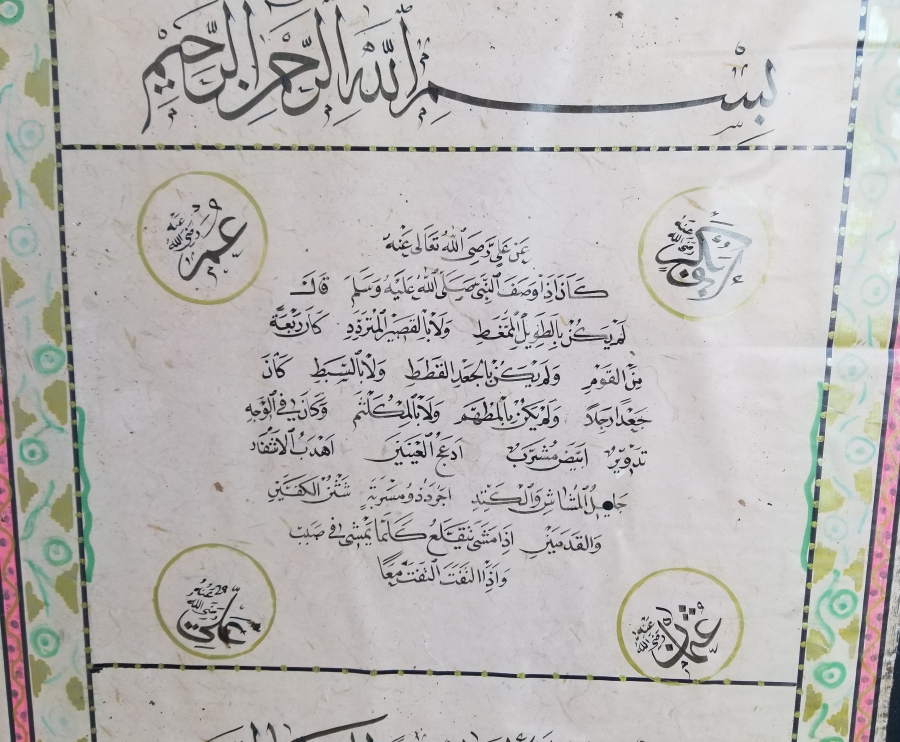 بسم الله الرحمن الرحيم
ابو بكر رضي الله عنه
عمر رضي الله عنه
عَنْ عَلِيٍّ رَضِيَ اللهُ تَعَالَى عَنْهُ
كَانَ إِذَا وَصَفَ النَّبِيَّ صَلَّى اللهُ عَلَيْهِ وَسَلَّمَ قَالَ
لَمْ يَكُنْ بِالطَّوِيلِ الْمُمَّغِطِ وَلَا بِالْقَصِيرِ الْمُتَرَدِّدِ كَانَ رَبْعَةً
مِنَ الْقَوْمِ وَلَمْ يَكُنْ بِالْجَعْدِ الْقَطَطِ وَلَا بِالسَّبِطِ كَانَ
جَعْدًا رَجِلًا وَلَمْ يَكُنْ بِالْمُطَهَّمِ وَلَا بِالْمُكَلْثَمِ وَكَانَ فِي الْوَجْهِ
تَدْوِيرٌ ابيَض مُشْرَبٌ ادْعَجُ الْعَيْنَيْنِ اهْدَبُ الْاشْفَار
جَلِيلُ الْمُشَاشِ وَالْكَتَدِ اجْرَدُ ذُو مَسْرُبَةٍ شَثْنُ الْكَفَّيْنِ
وَالْقَدَمَيْنِ اِذَا مَشَى تَقَلَّعَ كَاَنَّمَا يَمْشِي فِي صَبَبٍ
وَاِذَا الْتَفَتَ الْتَفَتَ مَعًا
عثمان رضي الله عنه
علي رضي الله عنه